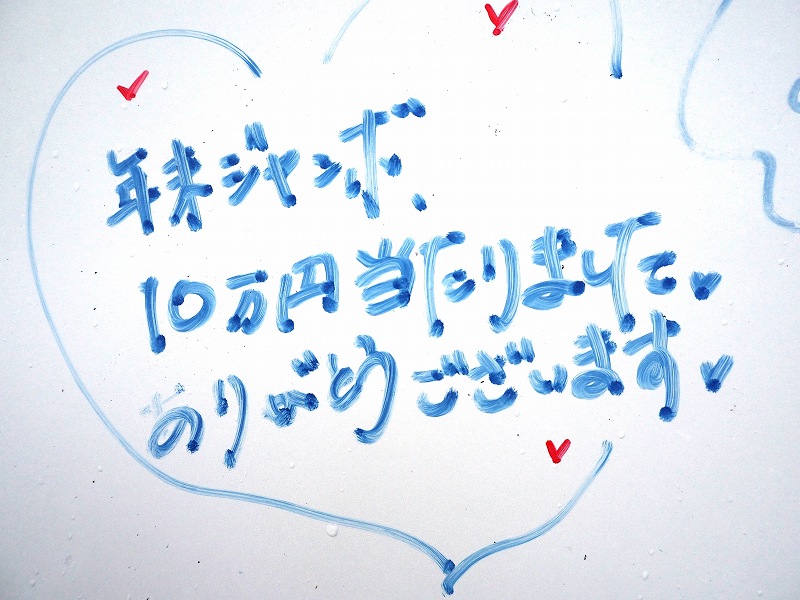 年末ジャンボ、
10万円当たりました♥
ありがとうございます♥